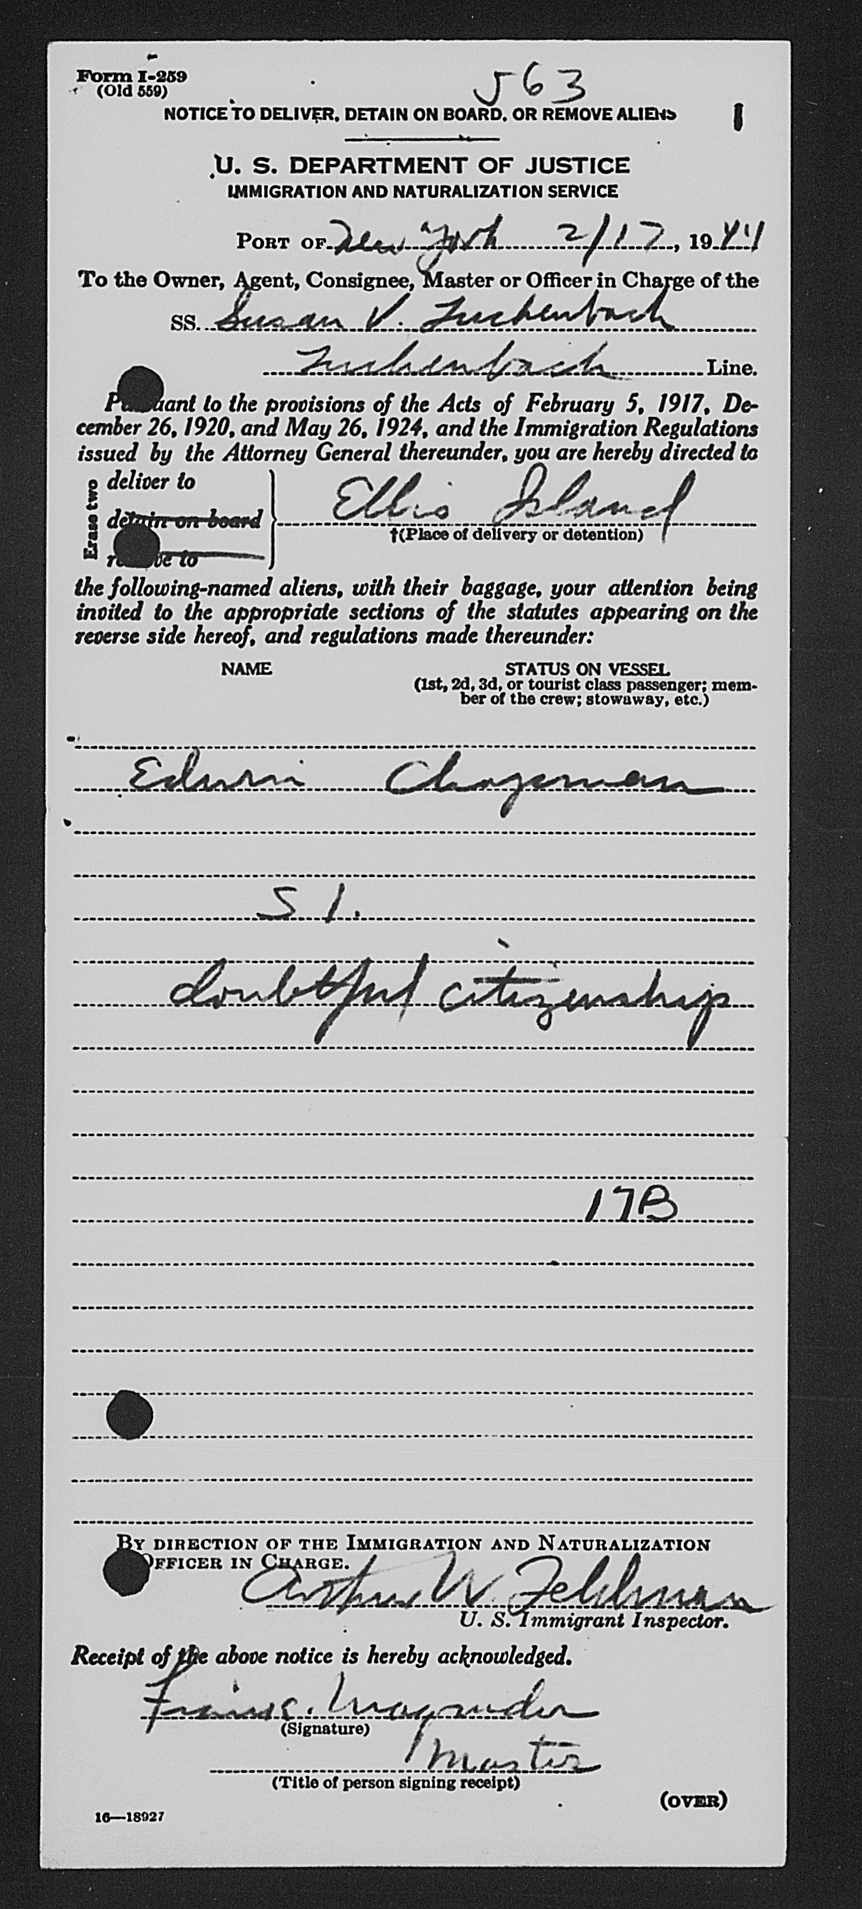 Form I-259
(Old 559)
563
NOTICE TO DELIVER, DETAIN ON BOARD, OR REMOVE ALIENS
1
U. S. DEPARTMENT OF JUSTICE
IMMIGRATION AND NATURALIZATION SERVICE
PORT OF New York 2/17, 1944
To the Owner, Agent, Consignee, Master or Officer in Charge of the
SS. Susan V. Luckenbach
Luckenbach Line.
Pursuant to the provisions of the Acts of February 5, 1917, De-
cember 26, 1920, and May 26, 1924, and the Immigration Regulations
issued by the Attorney General thereunder, you are hereby directed to
Erase two
deliver to
detain on board
remove to
Ellis Island
†(Place of delivery or detention)
the following-named aliens, with their baggage, your attention being
invited to the appropriate sections of the statutes appearing on the
reverse side hereof, and regulations made thereunder:
NAME
STATUS ON VESSEL
(1st, 2d, 3d, or tourist class passenger; mem-
ber of the crew; stowaway, etc.)
Edwin Chapman
S I.
doubtful citizenship
17B
BY DIRECTION OF THE IMMIGRATION AND NATURALIZATION
OFFICER IN CHARGE.
Arthur W. Feldman
U. S. Immigrant Inspector.
Receipt of the above notice is hereby acknowledged.
Magruder
(Signature)
Master
(Title of person signing receipt)
(OVER)
16—18927